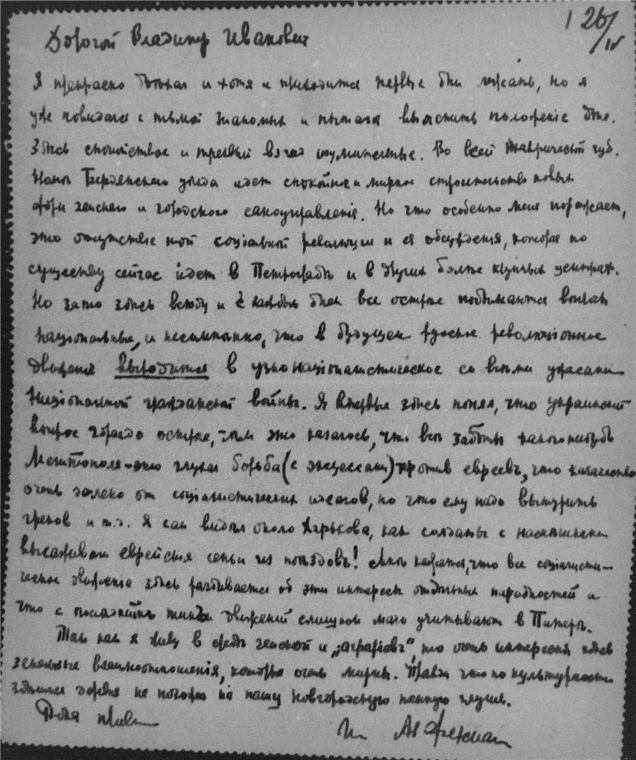 126/IV
Дорогой Владимир Иванович
Я прекрасно доехал и хотя и приходится первые дни лежать, но я
уже повидался с тьмой знакомых и пытался выяснить положение дел.
Здесь спокойствие и трезвый взгляд изумительные. Во всей Таврической губ.
кроме Бердянского уезда идет спокойное и мирное строительство новых
форм земского и городского самоуправленія. Но что особенно меня поражает,
это отсутствие той соціальной революции и ея обсуждения, которая по
существу сейчас идет в Петрограде и в других более крупных центрах.
Но зато здесь всюду и с каждым днем все острее поднимаются вопросы
національные, и несомненно, что в будущем русское революціонное
движение выродится в узко націоналистическое со всеми ужасами
національной гражданской войны. Я впервые здесь понял, что украинский
вопрос гораздо острее, чем это казалось, что все заботы какого нибудь
Мелитополя - это глухая борьба (с эксцессами) против евреевъ, что
очень далеко от социалистических идеалов, но что ему надо вытурить
греков и т.д. Я сам видел около Харькова, как солдаты с насмешками
высаживали еврейския семьи из поездовъ! Мне кажется, что все социалисти-
ческое движение здесь разбивается об эти интересы отдельных народностей и
что с последними движений слишком мало учитывают в Питере.
Так как я живу в среде земской и „аграріевъ", то очень интересны здесь
земельные взаимоотношения, которые очень мирны. Правда что по культурности
здешняя деревня не похожа на нашу Новгородскую темную глушь.
привет
А Ферсман